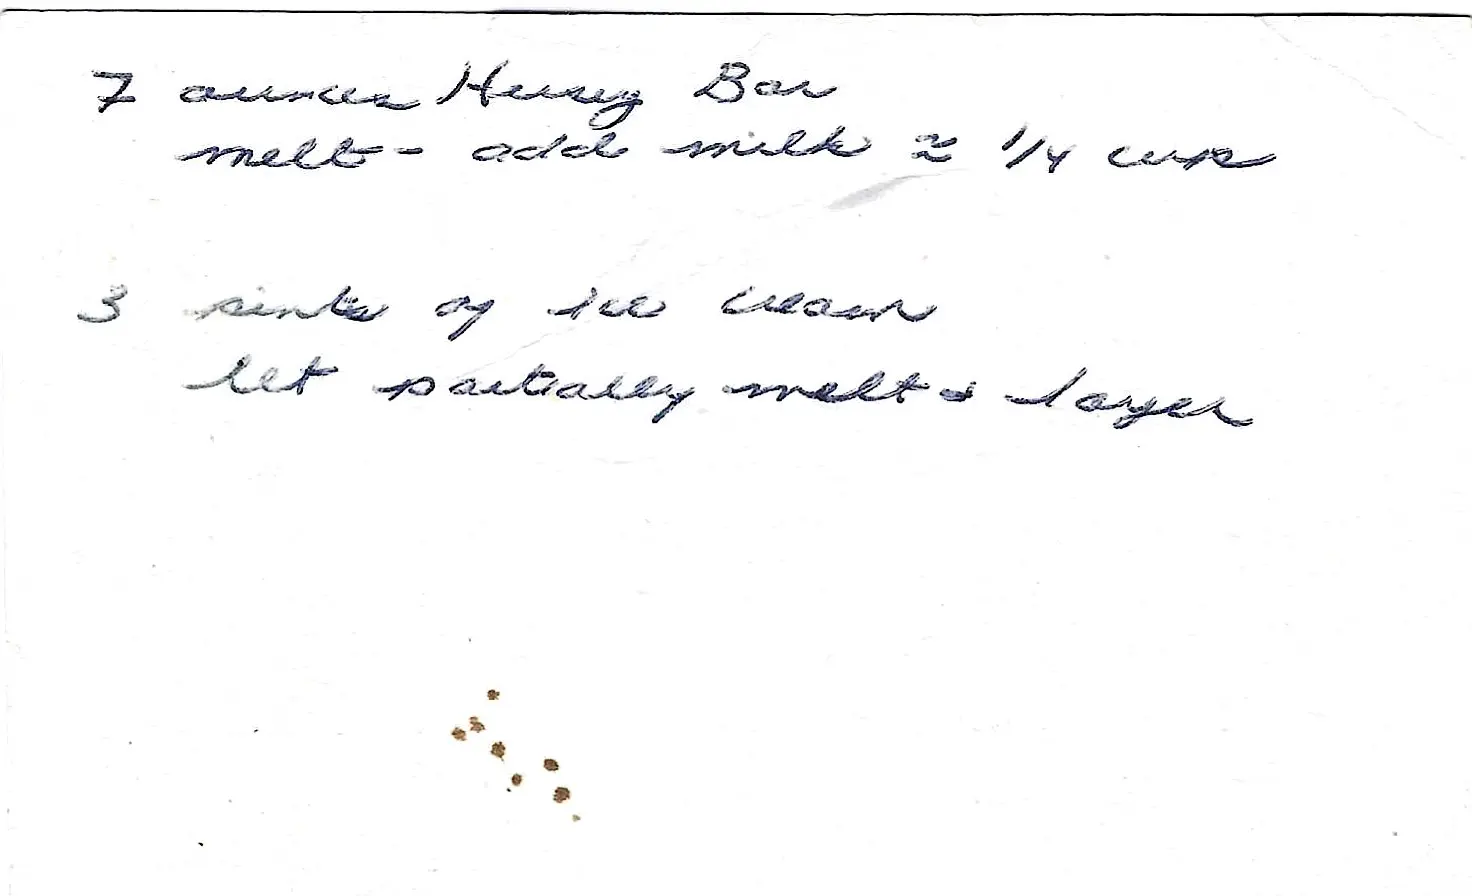 7 ounces Hersey Bar
melt - add milk ≈ 1/4 cup
3 pints of ice cream
let partially melt & layer